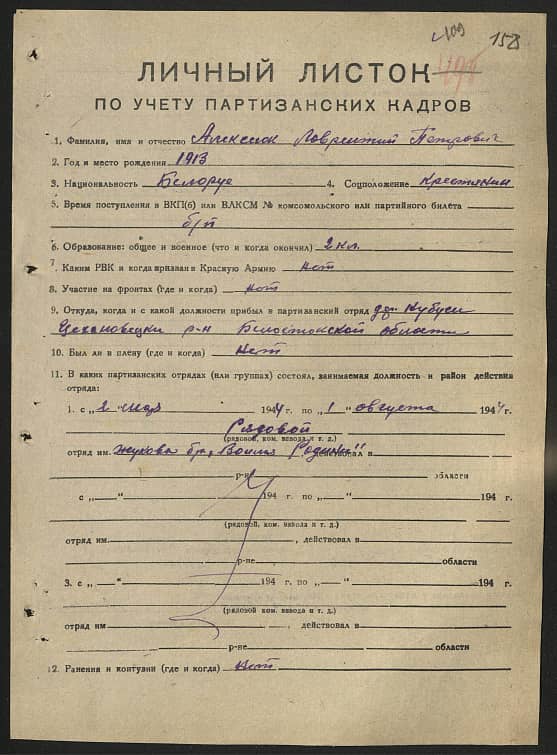 109 153
ЛИЧНЫЙ ЛИСТОК
ПО УЧЕТУ ПАРТИЗАНСКИХ КАДРОВ
1. Фамилия, имя и отчество Алексюк Лаврентий Петрович
2. Год и место рождения 1913
3. Национальность Белорус 4. Соцположение Крестьянин
5. Время поступления в ВКП(б) или ВЛКСМ № комсомольского или партийного билета
б/п
6. Образование: общее и военное (что и когда окончил) 2 кл.
7. Каким РВК и когда призван в Красную Армию нет
8. Участие на фронтах (где и когда) нет
9. Откуда, когда и с какой должности прибыл в партизанский отряд
Цехановецки р-н Белостокской области
10. Был ли в плену (где и когда) Нет
11. В каких партизанских отрядах (или группах) состоял, занимаемая должность и район действия
отряда:
1. с „2 1944 г. по „1" августа 1944 г.
Рядовой
(рядовой, ком. взвода и т. д.)
отряд им. Жукова бр. „ Родины" действовал в
р-не области
с „ — " 194 г. по „ — " 194 г.
(рядовой, ком. взвола и т. д.)
отряд им. , действовал в
р-не области
3. с „ — " 194 г. по „ — " 194 г.
(рядовой ком. взвода и т. д.)
отряд им , действовал в
р-не области
2. Ранения и контузии (где и когда) Нет